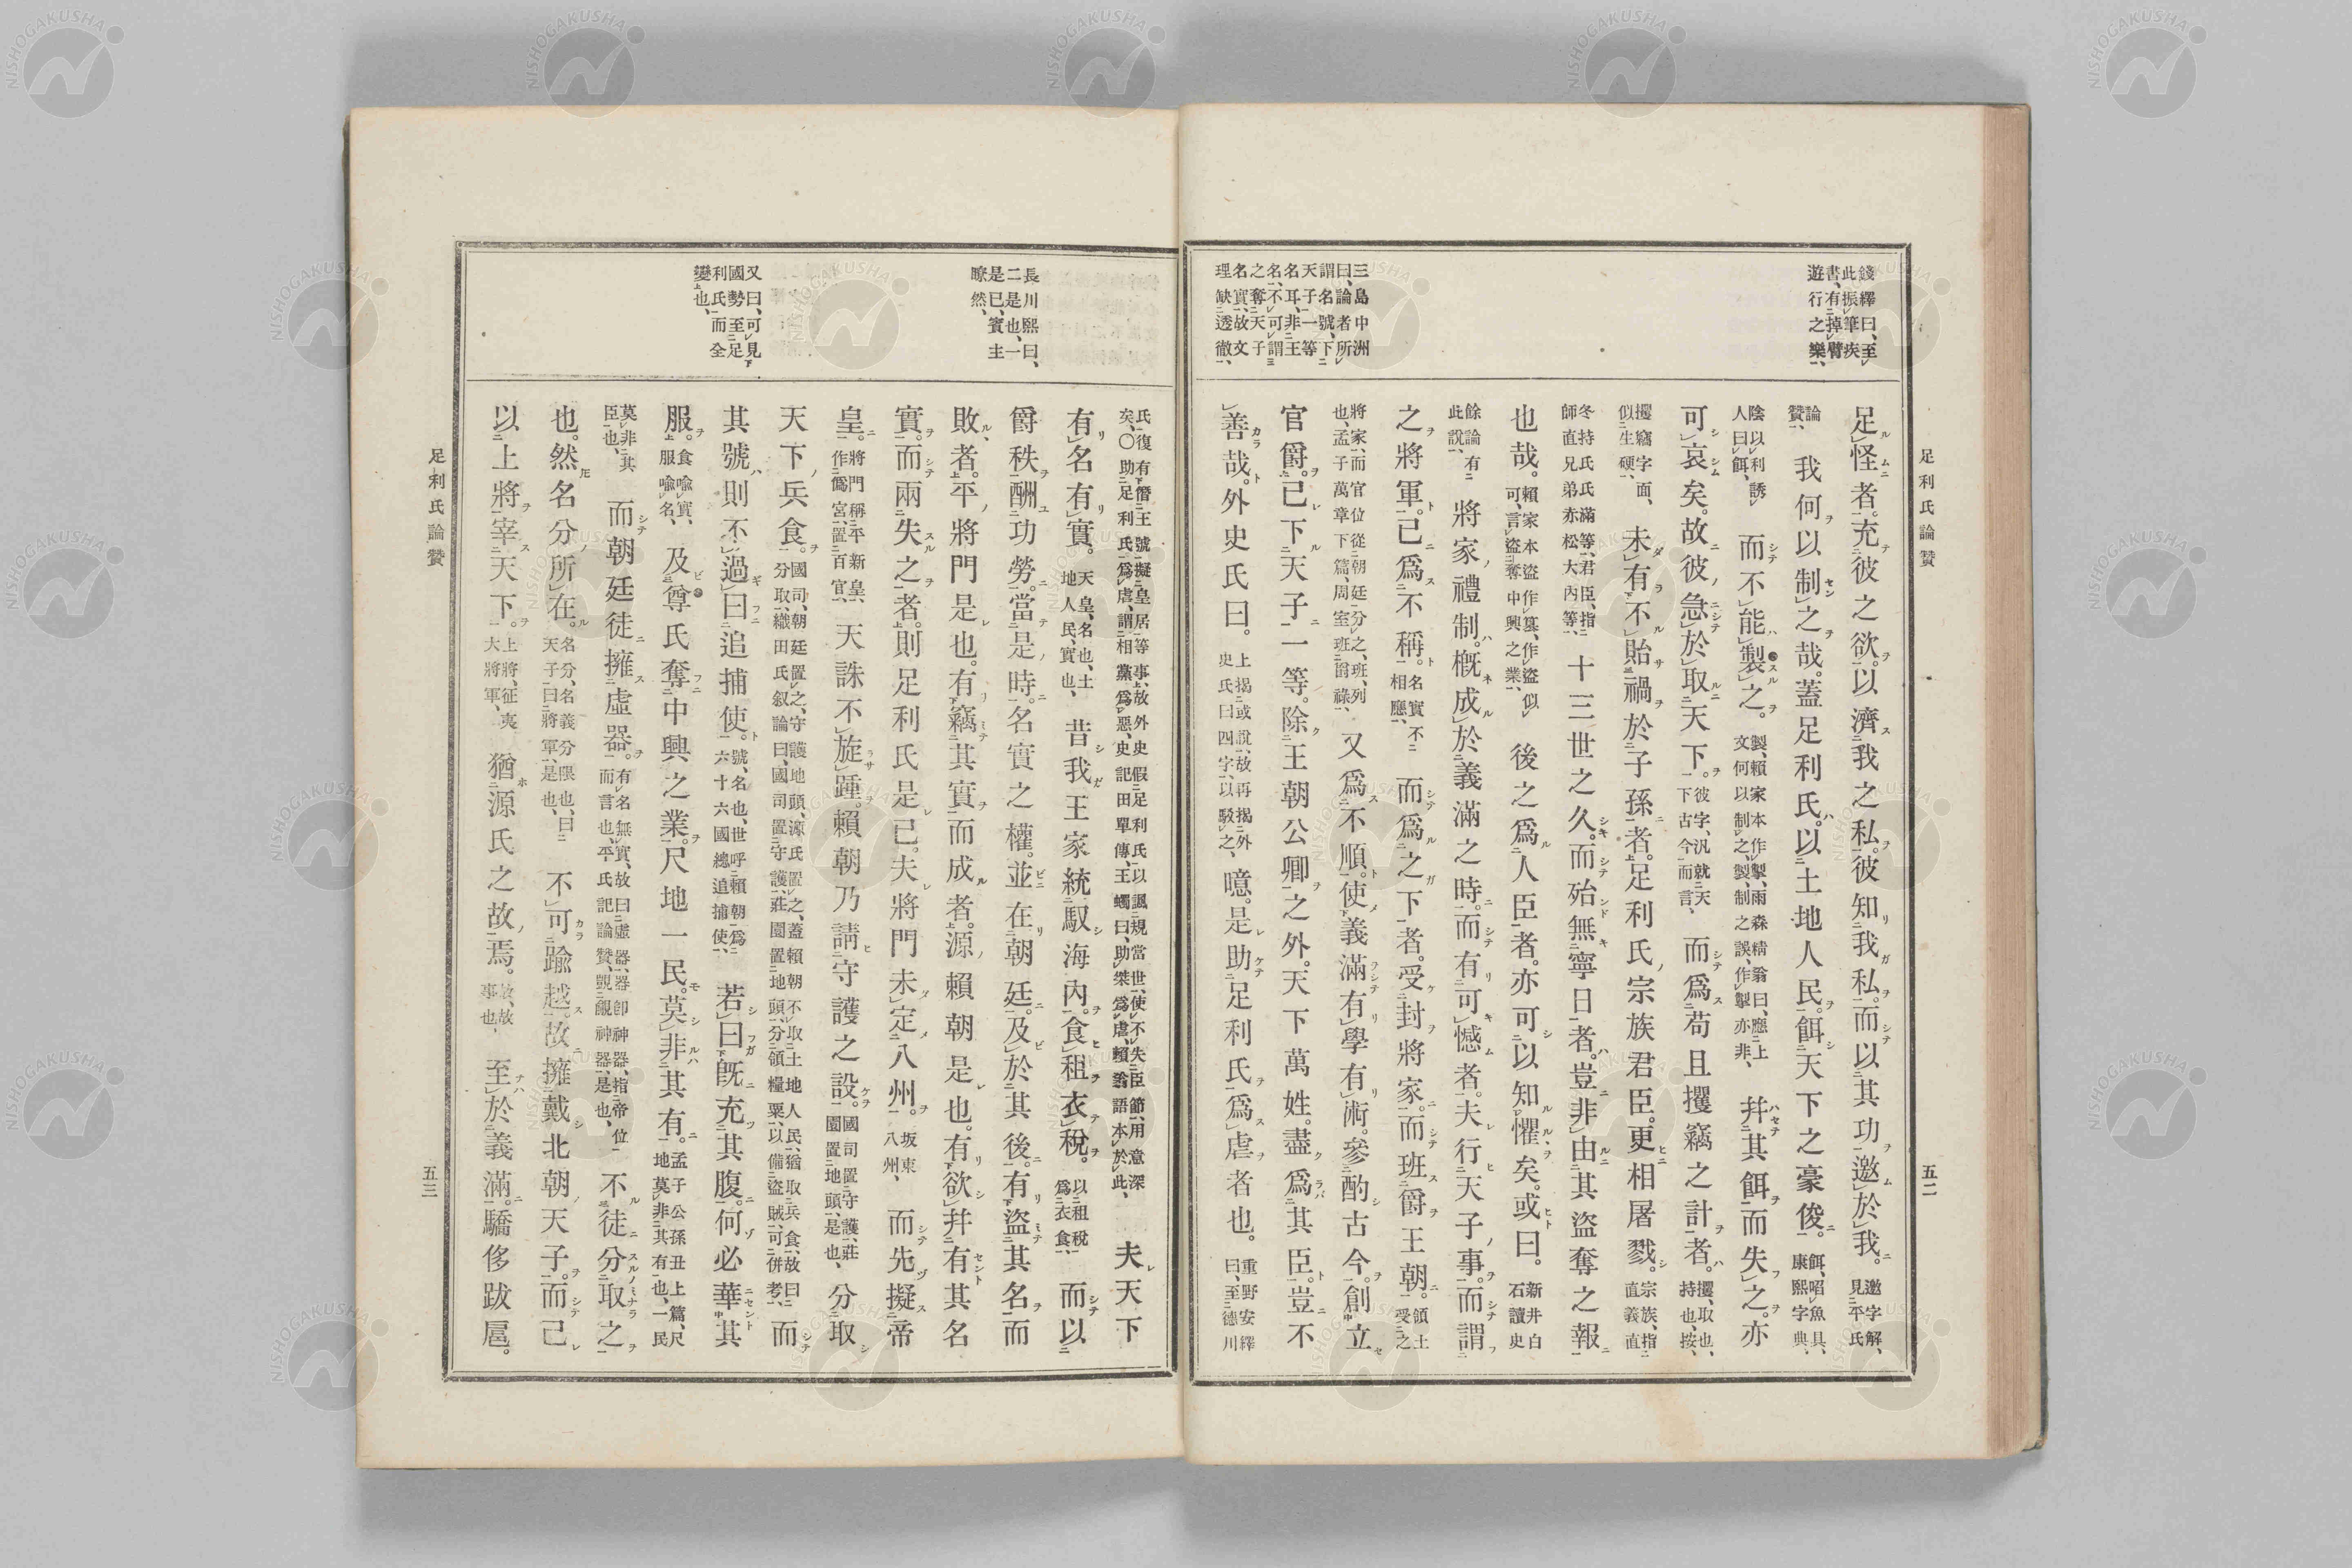 足利氏論贊
五二
錢繹曰、至
此振筆疾
書、有掉臂
遊行之樂、
三島中洲
曰、論者所
謂名號、下
天子一等
名耳、非王
名、不可謂
之奪天子
名實、故文
理缺透徹、
足怪者。充彼之欲。以濟我之私。彼知我私。而以其功邀於我。邀字解、見平氏
論贊、我何以制之哉。蓋足利氏。以土地人民。餌天下之豪俊。餌、昭魚具、康熙字典、
陰以利誘人曰餌、而不能製之。製、賴家本作掣、雨森精翁曰、應上文何以制之、製、制之誤、作掣亦非、幷其餌而失之。亦
可哀矣。故彼急於取天下。彼字、汎就天下古今而言、而爲苟且攫竊之計者。攫、取也、持也、按、
攫竊字面、似生硬、未有不貽禍於子孫者。足利氏宗族君臣。更相屠戮。宗族、指直義直
冬持氏氏滿等、君臣、指師直兄弟赤松大內等、十三世之久。而殆無寧日者。豈非由其盜奪之報
也哉。賴家本盜作篡、作盜似可、言盜奪中興之業、後之爲人臣者。亦可以知懼矣。或曰。新井白石讀史
餘論有此說、將家禮制。槪成於義滿之時。而有可憾者。夫行天子事。而謂
之將軍。已爲不稱。名實不相應、而爲之下者。受封將家。而班爵王朝。領土受之
將家、而官位從朝廷分之、班、列也、孟子萬章下篇、周室班爵祿、又爲不順。使義滿有學有術。參酌古今。創立
官爵。已下天子一等。除王朝公卿之外。天下萬姓。盡爲其臣。豈不
善哉。外史氏曰。上揭或說、故再揭外史氏曰四字、以駁之、噫。是助足利氏爲虐者也。重野安繹曰、至德川
長川熙曰、
二是也、一
是已、實主
瞭然、
又曰、可見
國勢至足
利氏而全
變也、
氏復有僭王號擬皇居等事、故外史假足利氏以諷規當世、使不失臣節、用意深矣、〇助足利氏爲虐、謂相黨爲惡、史記田單傳、王蠋曰、助桀爲虐、賴翁語本於此、夫天下
有名有實。天皇、名也、土地人民、實也、昔我王家統馭海內。食租衣稅。以租稅爲衣食、而以
爵秩酬功勞。當是時。名實之權。並在朝廷。及於其後。有盜其名而
敗者。平將門是也。有竊其實而成者。源賴朝是也。有欲幷有其名
實。而兩失之者。則足利氏是已。夫將門未定八州。坂東八州、而先擬帝
皇。將門稱平新皇、作僞宮、置百官、天誅不旋踵。賴朝乃請守護之設。國司置守護、莊園置地頭、是也、分取
天下兵食。國司、朝廷置之、守護地頭、源氏置之、蓋賴朝不取土地人民、猶取兵食、故曰分取、織田氏叙論曰、國司置守護、莊園置地頭、分領糧粟、以備盜賊、可併考、而
其號則不過曰追捕使。號、名也、世呼賴朝爲六十六國總追捕使、若曰旣充其腹。何必華其
服。食喩實、服喩名、及尊氏奪中興之業。尺地一民。莫非其有。孟子公孫丑上篇、尺地莫非其有也、一民
莫非其臣也、而朝廷徒擁虛器。有名無實、故曰虛器、器卽神器、指帝位而言也、平氏記論贊、覬覦神器、是也、不徒分取之
也。然名分所在。名分、名義分限也、曰天子曰將軍、是也、不可踰越。故擁戴北朝天子。而己
以上將宰天下。上將、征夷大將軍、猶源氏之故焉。故、故事也、至於義滿。驕侈跋扈。
足利氏論贊
五三